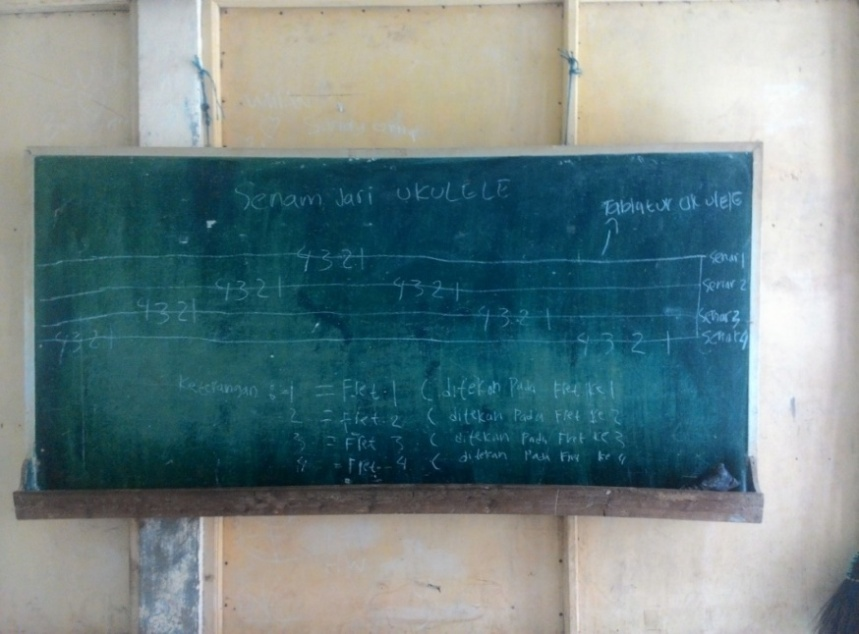 Senam Jari UKULELE
Tablatur UKULELE
4 3 2 1 senar 1
4 3 2 1 4 3 2 1 senar 2
4 3 2 1 4 3 2 1 senar 3
4 3 2 1 4 3 2 1 senar 4
Keterangan : 1 = Fret 1 ( ditekan Pada Fret ke 1
2 = Fret 2 ( ditekan Pada Fret ke 2
3 = Fret 3 ( ditekan Pada Fret ke 3
4 = Fret 4 ( ditekan Pada Fret ke 4